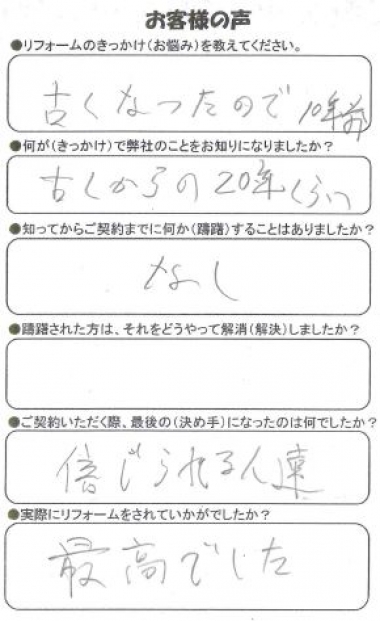 お客様の声
●リフォームのきっかけ(お悩み)を教えてください。
古くなったので 10年
●何が(きっかけ)で弊社のことをお知りになりましたか?
古くからの20年くらい
●知ってからご契約までに何か(躊躇)することはありましたか?
なし
●躊躇された方は、それをどうやって解消(解決)しましたか?
●ご契約いただく際、最後の(決め手)になったのは何でしたか?
信じられる人達
●実際にリフォームをされていかがでしたか?
最高でした